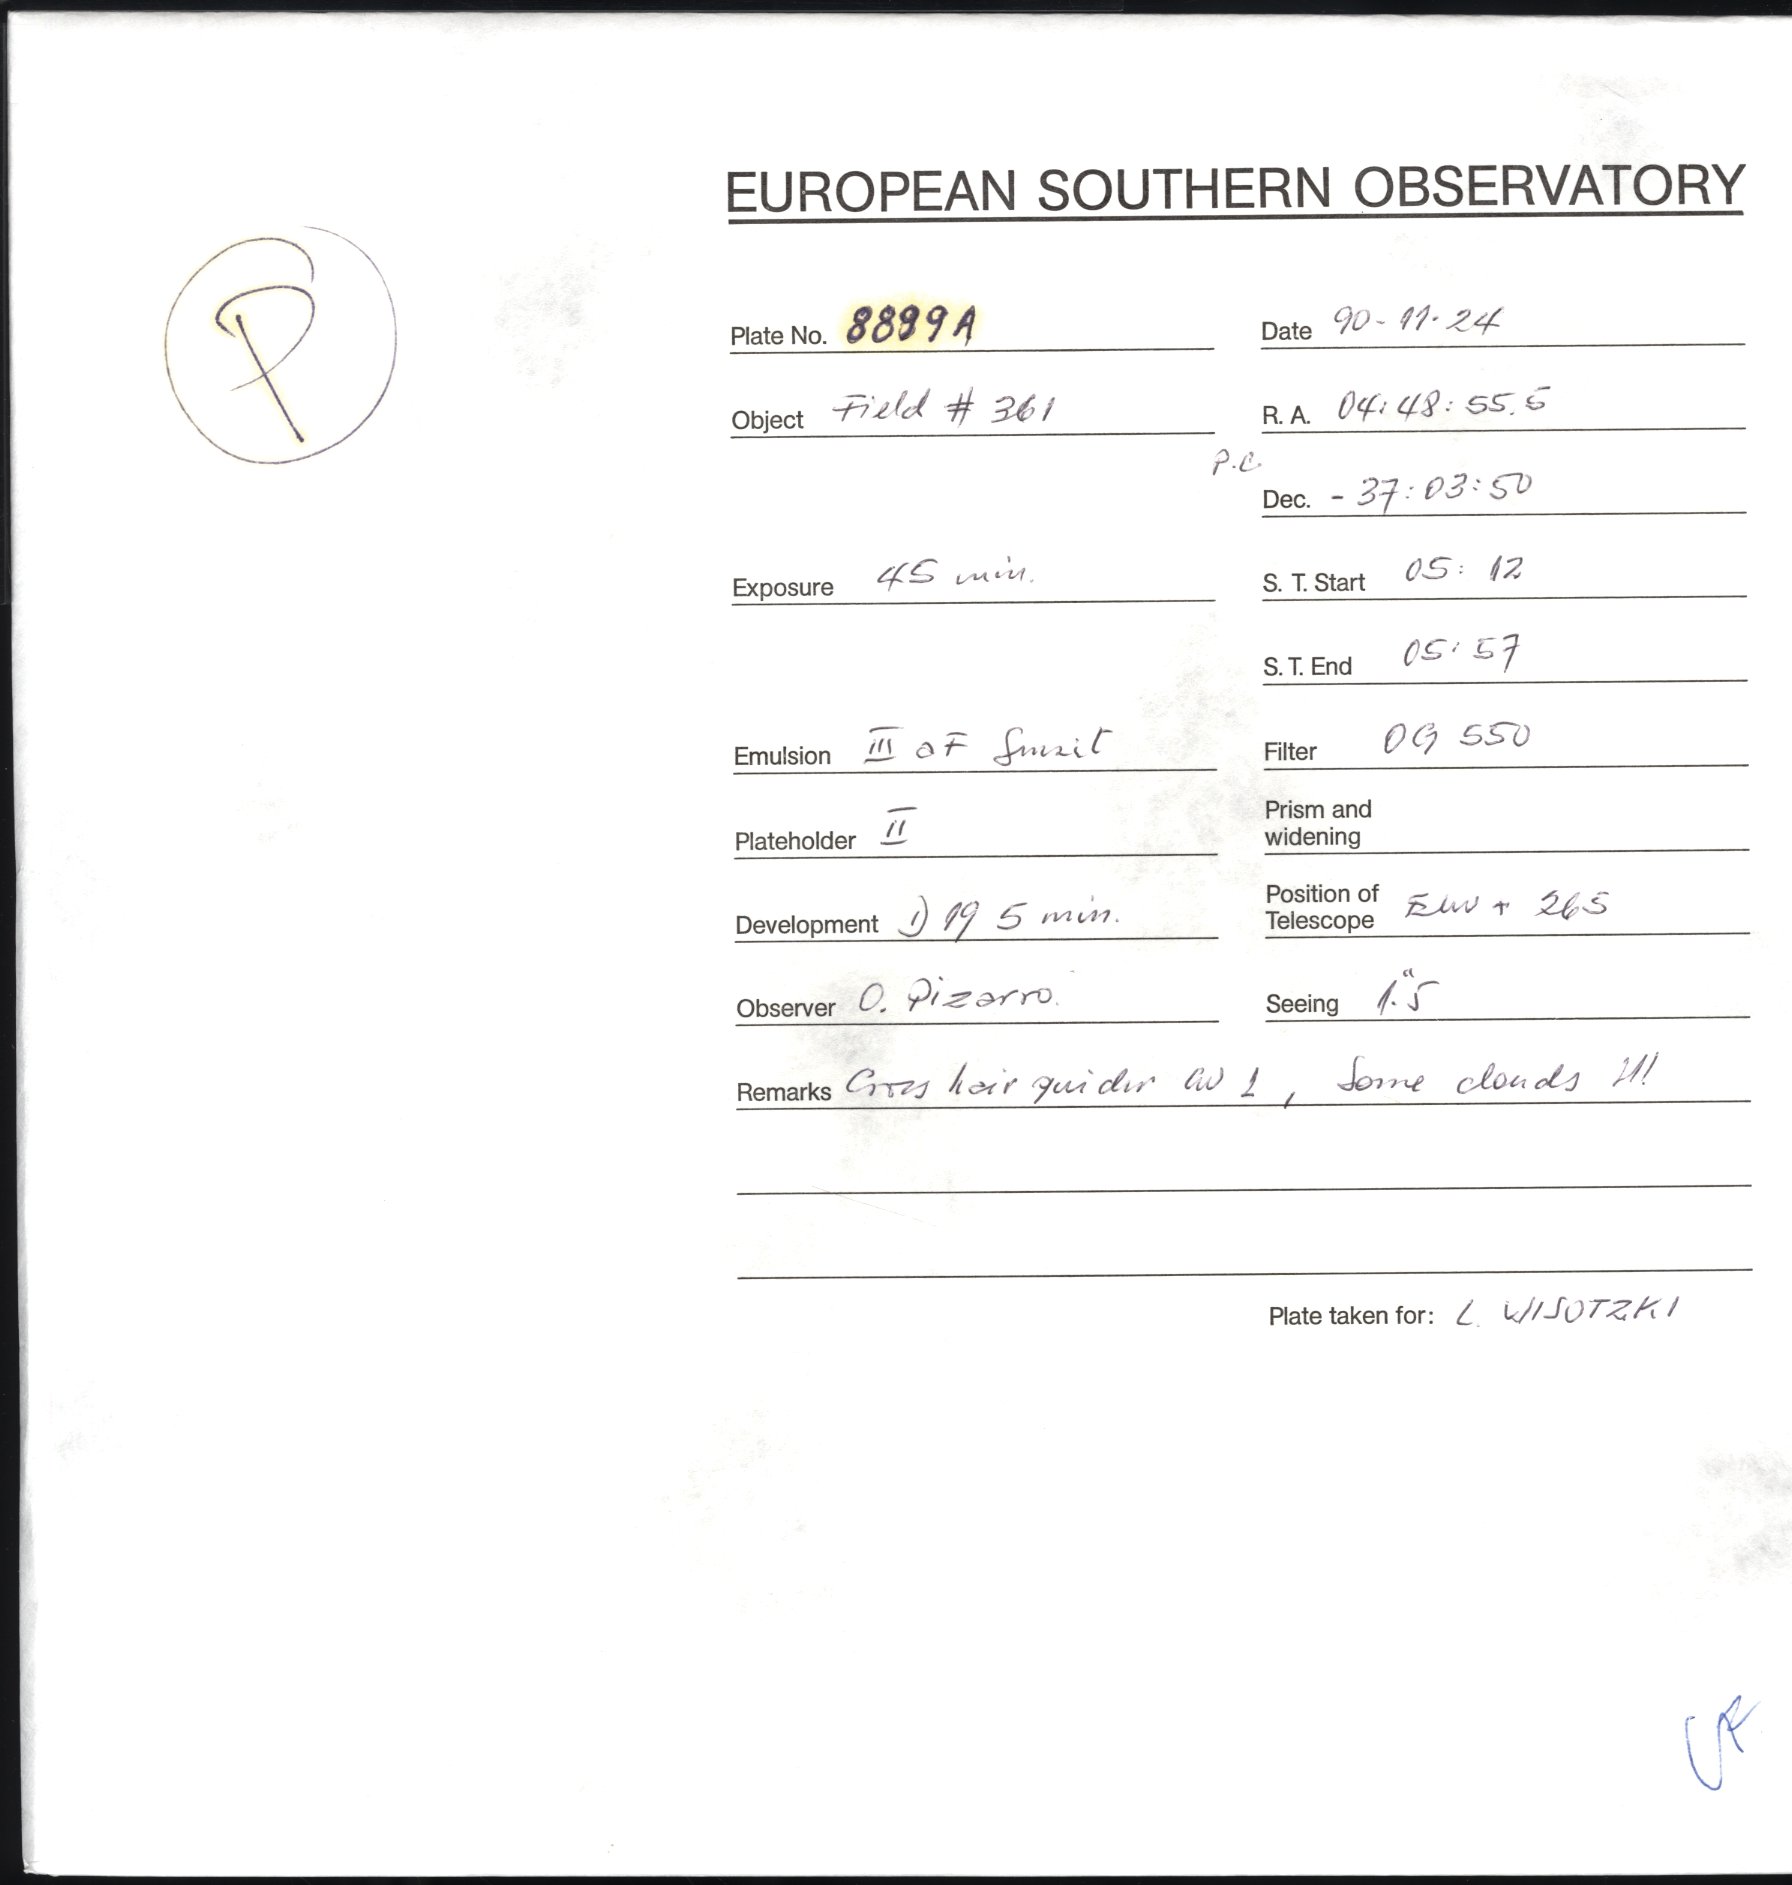 EUROPEAN SOUTHERN OBSERVATORY
P
Plate No. 8889A Date 90-11-24
Object Field # 361 R. A. 04:48:55.5
P.C.
Dec. - 37:03:50
Exposure 45 min. S. T. Start 05:12
S. T. End 05:57
Emulsion III aF Filter OG 550
Plateholder II Prism and
widening
Development 1) 19 5 min. Position of
Telescope + 265
Observer O. Pizarro. Seeing 1."5
Remarks Cross hair guider 1, Some clouds !!!
Plate taken for: L. WISOTZKI